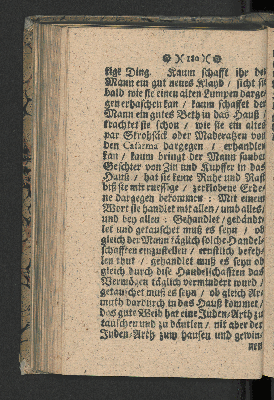 180
tige Ding. Kaum schafft ihr der
Mann ein gut neues Klayd / sicht sie
bald wie sie einen alten Lumpen darge-
gen erhaschen kan / kaum schaffet der
Mann ein gutes Beth in das Hauß /
trachtet sie schon / wie sie ein altes
par Strohsäck oder Maderatzen von
den Caserma dargegen / erhandlen
kan / kaum bringt der Mann saubere
Geschier von Zin und Kupffer in das
Hauß / hat sie keine Ruhe und Rast
biß sie mit russige / zerklobene Erde-
ne dargegen bekommen: Mit einem
Wort sie handlet mit allen / umb alles /
und bey allen: Gehandlet / gehändt-
let und getauschet muß es seyn / ob
gleich der Mann täglich solche Handel-
schafften einzustellen / ernstlich befeh-
len thut / gehandlet muß es seyn ob
gleich durch dise Handelschafften das
Vermögen täglich vermindert wurd /
getauschet muß es seyn / ob gleich Ar-
muth dardurch in das Hauß kommet /
das gute Weib hat eine Juden-Arth zu
tauschen und zu häntlen / nit aber der
Juden-Arth zum hausen und gewin-
nen